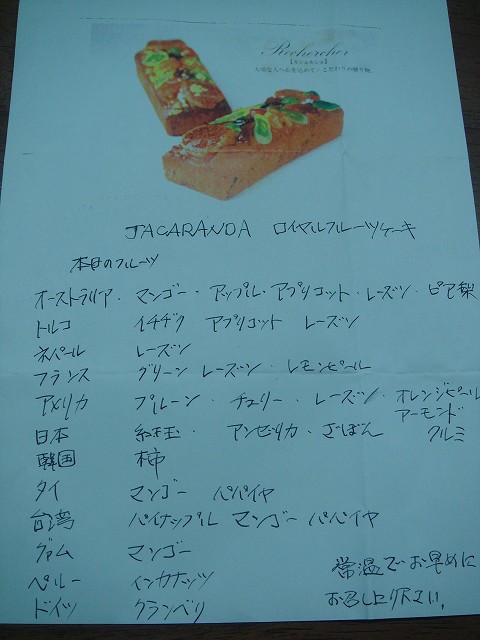 Rechercher
【ルシェルシェ】
大切な人へ心を込めて・こだわりの贈り物
JACARANDA ロイヤルフルーツケーキ
本日のフルーツ
オーストラリア・ マンゴー・アップル・アプリコット・レーズン・ピア梨
トルコ イチヂク アプリコット レーズン
ネパール レーズン
フランス グリーンレーズン・レモンピール
アメリカ プルーン・チェリー・レーズン・オレンジピール
アーモンド
クルミ
日本 紅玉・アンゼリカ・ざぼん
韓国 柿
タイ マンゴー パパイヤ
台湾 パイナップル マンゴー パパイヤ
グァム マンゴー
ペルー インカナッツ
ドイツ クランベリ
常温でお早めに
お召し上り下さい。